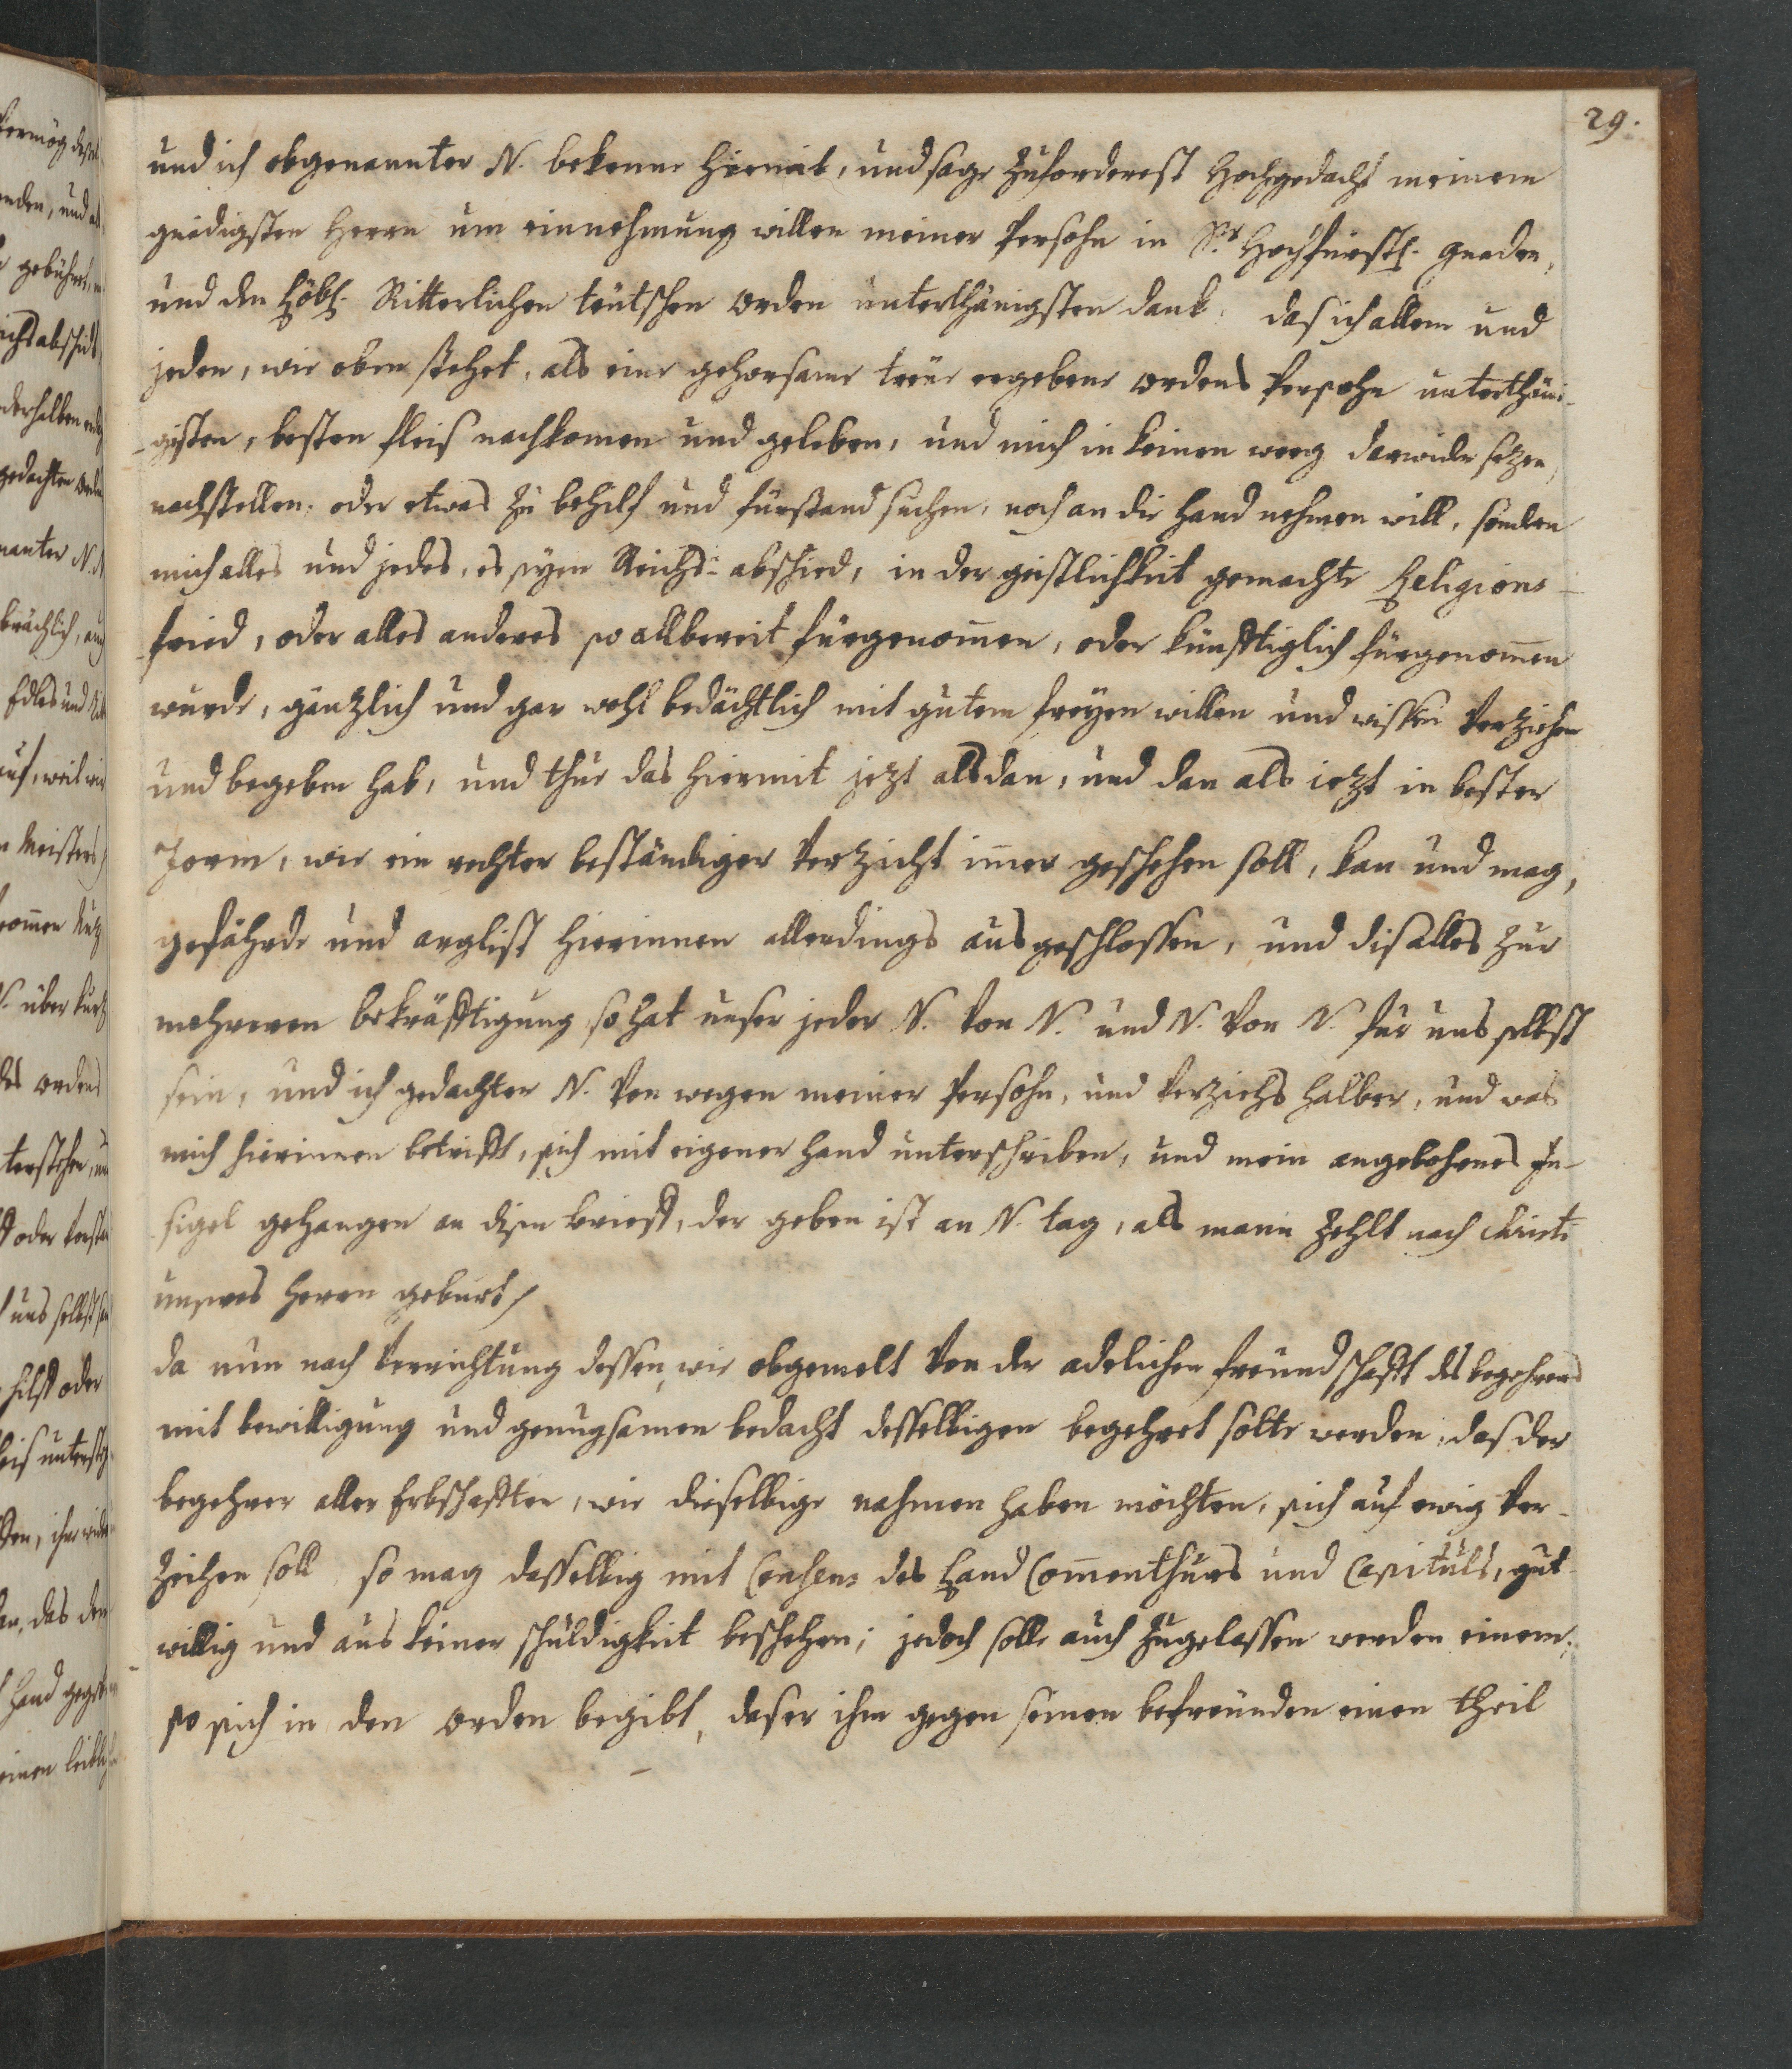 29.
und ich obgenannter N. bekenne hiemit, und sage zuforderest Hochgedacht meinem
gnädigsten Herrn um einnehmung willen meiner Persohn in Sr. Hochfürstl. gnaden,
und den Löbl. Ritterlichen teütschen Orden unterthänigsten dank, das ich allem und
jeden, wie oben stehet, als eine gehorsame treüe ergebene ordens Persohn unterthäni-
gisten, besten fleis nachkomen und geleben, und mich in keinen weeg darwider setzen,
nachstellen, oder etwas zu behilf und fürstand suchen, noch an die hand nehmen will, sondern
mich alles und jedes, es seyen Reichs-abschied, in der geistlichkeit gemachte Religions-
fried, oder alles anderes so allbereit fürgenom̄en, oder künfftiglich fürgenom̄en
wurde, gänzlich und gar wohl bedächtlich mit gutem freyen willen und wissen Verziehen
und begeben hab, und thue das hiermit jezt alsdan, und dan als iezt in bester
Form, wie ein rechter beständiger Verzicht im̄er geschehen soll, kan und mag,
gefährde und arglist hierinnen allerdings ausgeschlossen, und dis alles zur
mehreren bekräfftigung so hat unser jeder N. Von N. und N. Von N. für uns selbst
sein, und ich gedachter N. Von wegen meiner Persohn, und Verziehs halber, und was
mich hierinnen betrifft, sich mit eigener hand unterschriben, und mein angebohenes In-
sigel gehangen an disen brieff, der geben ist an N. tag, als mann zehlt nach Christi
unseres Herrn geburt/
da nun nach Verrichtung dessen, wie obgemelt Von der adelichen freündschafft des begehrers
mit bewilligung und genugsamen bedacht desselbigen begehret solte werden, das der
begehrer aller Erbschafften, wie dieselbige nahmen haben möchten, sich auf ewig Ver-
zeihen soll, so mag dasselbig mit Consens des Land Com̄enthurs und Capituls, gut-
willig und aus keiner schuldigkeit beschehen; jedoch solle auch zugelassen werden einem,
so sich in den orden begibt, das er ihm gegen seinen befreünden einen theil